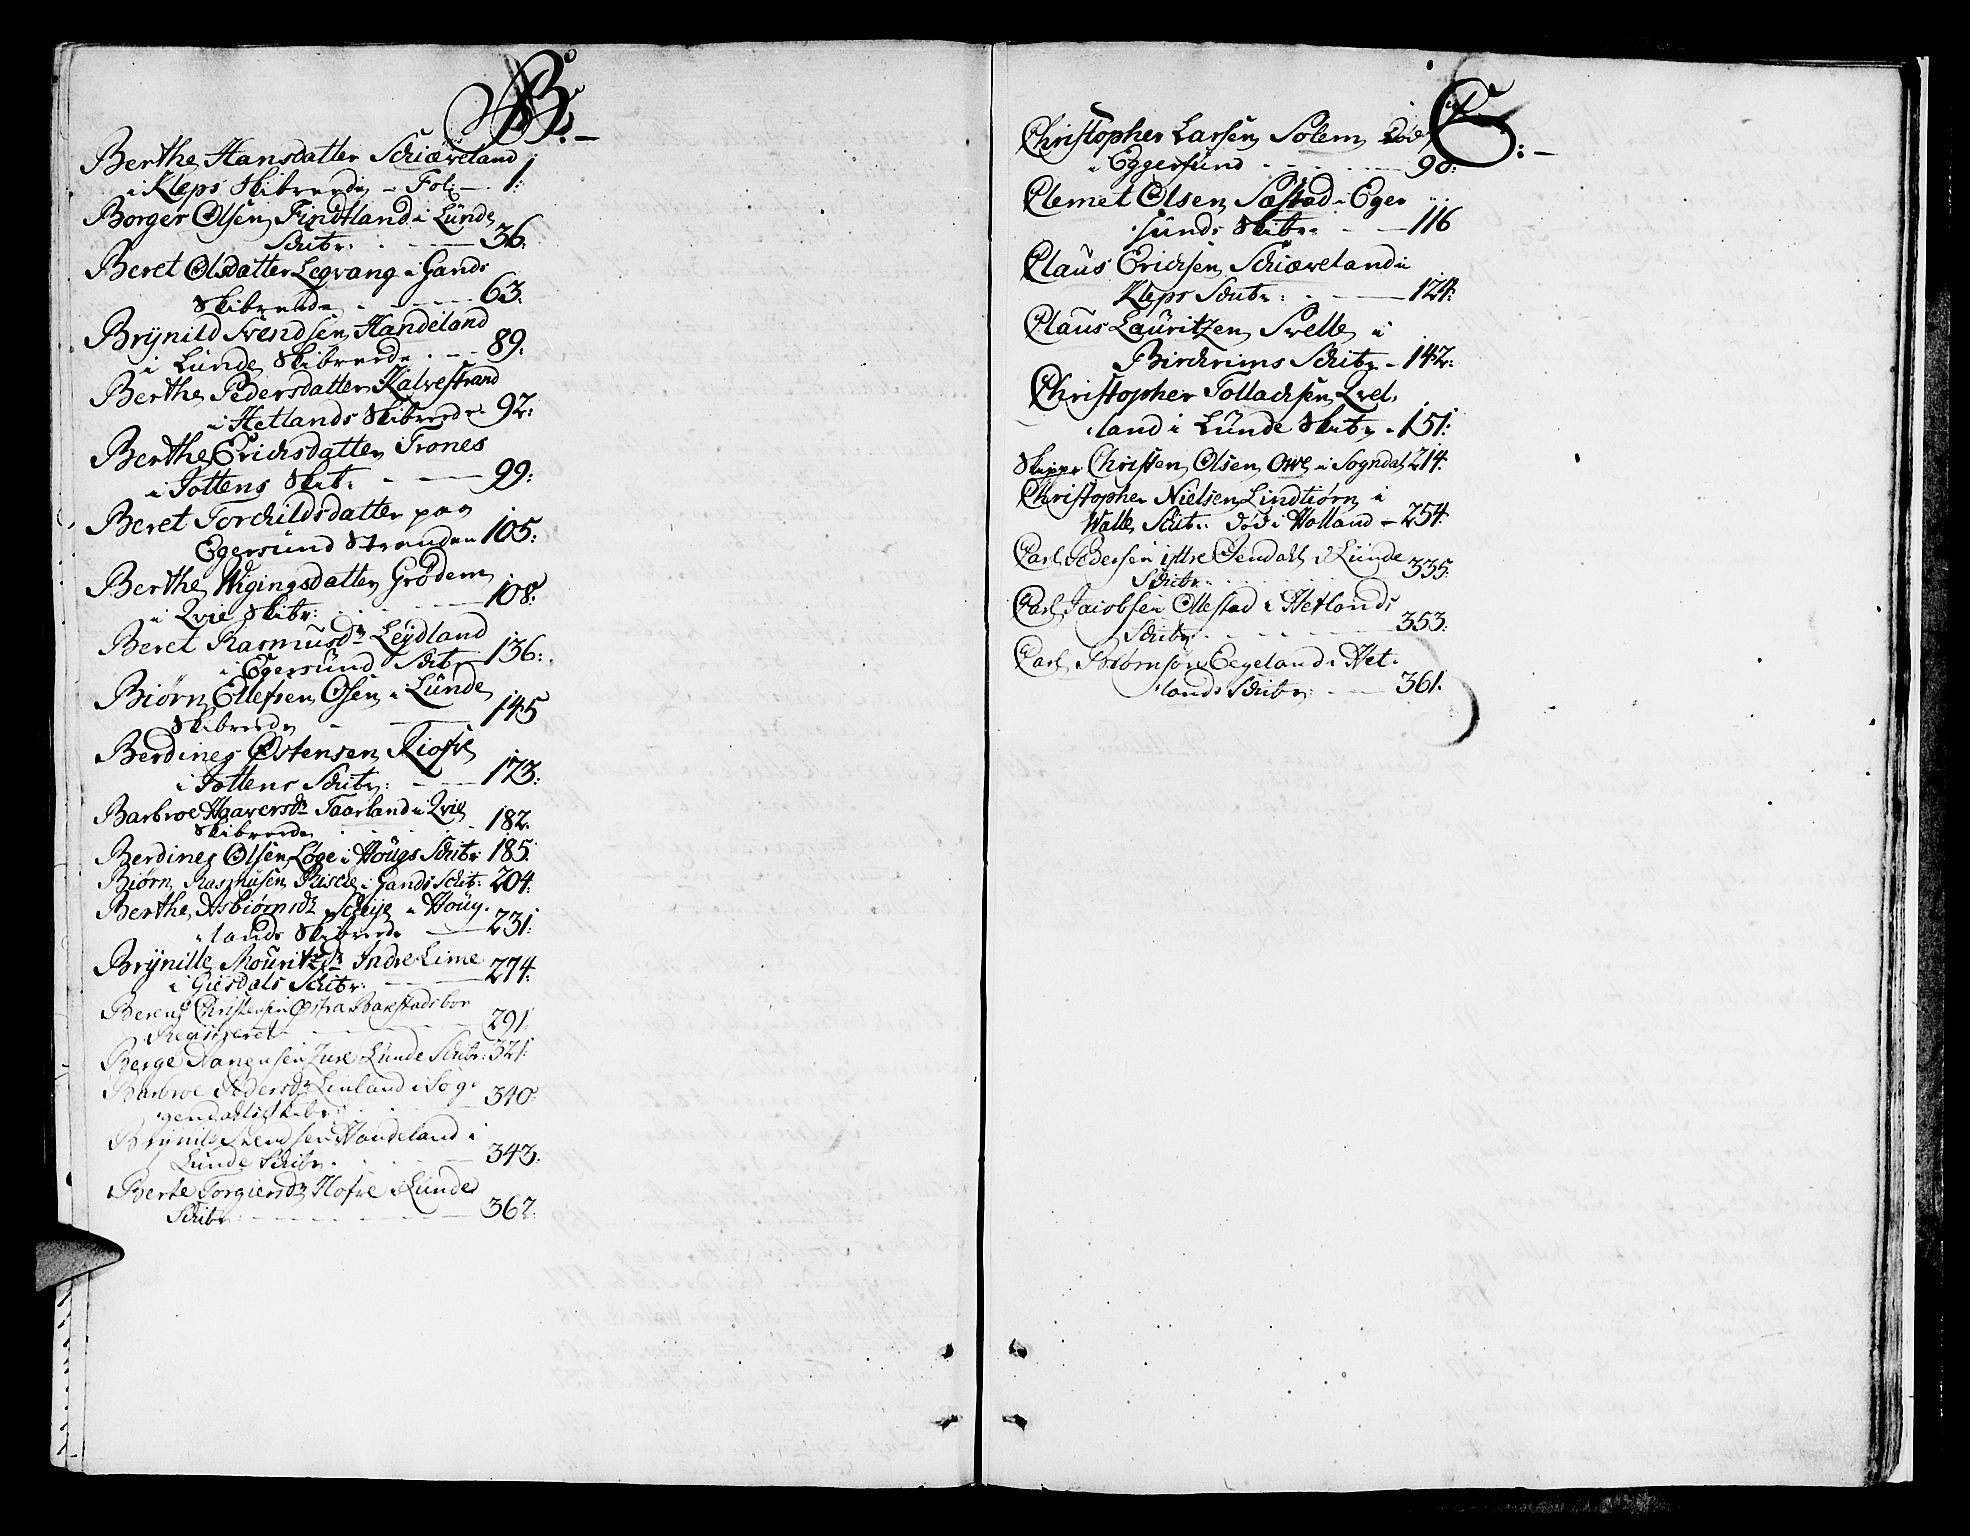 B:
Berthe Hansdatter Schiæveland
i Kleps Skibrede - Fol: - 1:
Borger Olsen Findtland i Lünde
Schibr: - 36:
Beret Olsdatter Legvang i Gands
Skibrede - 63:
Brÿnild Svendsen Handeland
i Lunde Skibrede - 89:
Berthe Pedersdatter Kalvestrand
i Hetlands Skibrede: 92:
Berthe Erichsdatter Trones
i Jottens Skib: - 99:
Beret Torchildsdatter paa
Egersünd Stranden 105:
Berthe Wigingsdatter Grødem
i Qvie Skibr: - 108:
Beret Rasmusdr Leÿdland
i Egersünd Schibr - 136:
Biørn Ellefsen Osen i Lünde
Skibrede - 145
Berdines Østensen
i Jottens Schibr: - 173:
Barbroe Haaversdr Taarland i Qvie
Skibrede - 182.
Berdines Olsen Løge i Høügs Schibr: 185:
Biørn Rasmusen Rische i Gands Schibr: 204:
Berthe Asbiørnsdr Scheije i Høüg-
lands Skibrede - 231:
Brÿnille Mouritzdr Indre Lime
i Giesdals Schibr: - 274:
Berent Christensen Østra
Registeret - 291:
Berge Lünde Schibr: 321:
Barbroe Pedersdr Linland i Sog-
gendahls Skibr: - 340:
Brÿnild Svendsen Handeland i
Lunde Schibr: - 343:
Berte Torgiersdr Hofre i Lunde
Schibr: - 362:
C:
Christopher Larsen Solem Død
i Eggersund - 90:
Clemet Olsen Sæstad i Eger
sünds Skibr: - 116
Claus Erichsen Schiæveland i
Kleps Schibr: - 124:
Claus Lauritzen Svelle i
Birchrims Schibr - 142:
Christopher Tollachsen Qvel-
land i Lünde Skibr - 151:
Skippr Christen Olsen Owe i Sogndal 214:
Christopher Nielsen Lindtiørn i
Walle Schibr: død i Holland - 254:
Carl Pedersen ÿttre Oendahl i Lünde
Schibr: - 335:
Carl Jacobsen Ollestad i Hetlands
Schibr - 353:
Carl Biørnsøn Eegeland i Het-
lands Schibr: - 361: